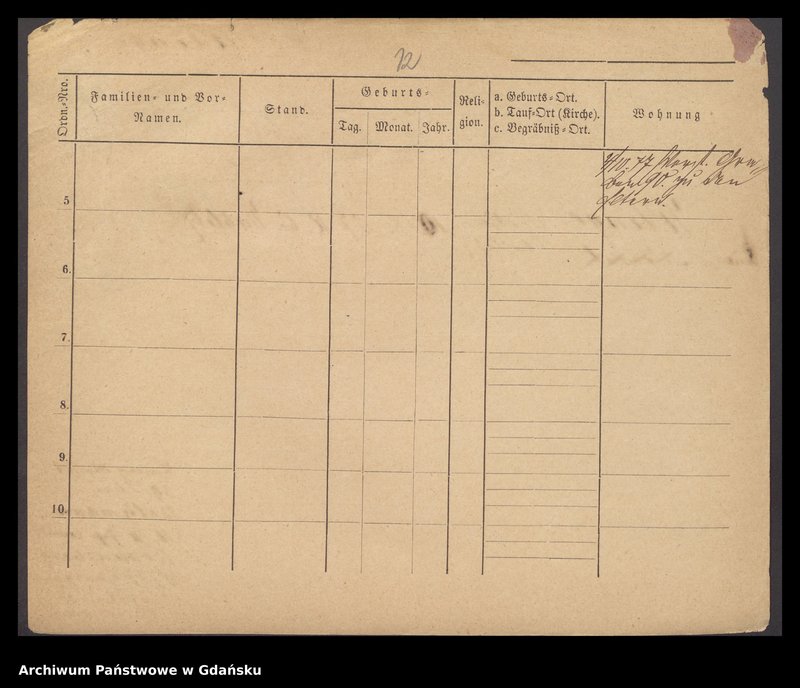 12
Ordn.-Nro.
Familien- und Vor-
Namen.
Stand.
Geburts-
Tag.
Monat.
Jahr.
Reli-
gion.
a. Geburts-Ort.
b. Tauf-Ort (Kirche).
c. Begräbniß-Ort.
Wohnung
77
90. zu den
Eltern.
5
6.
7.
8.
9.
10.
Archiwum Państwowe w Gdańsku